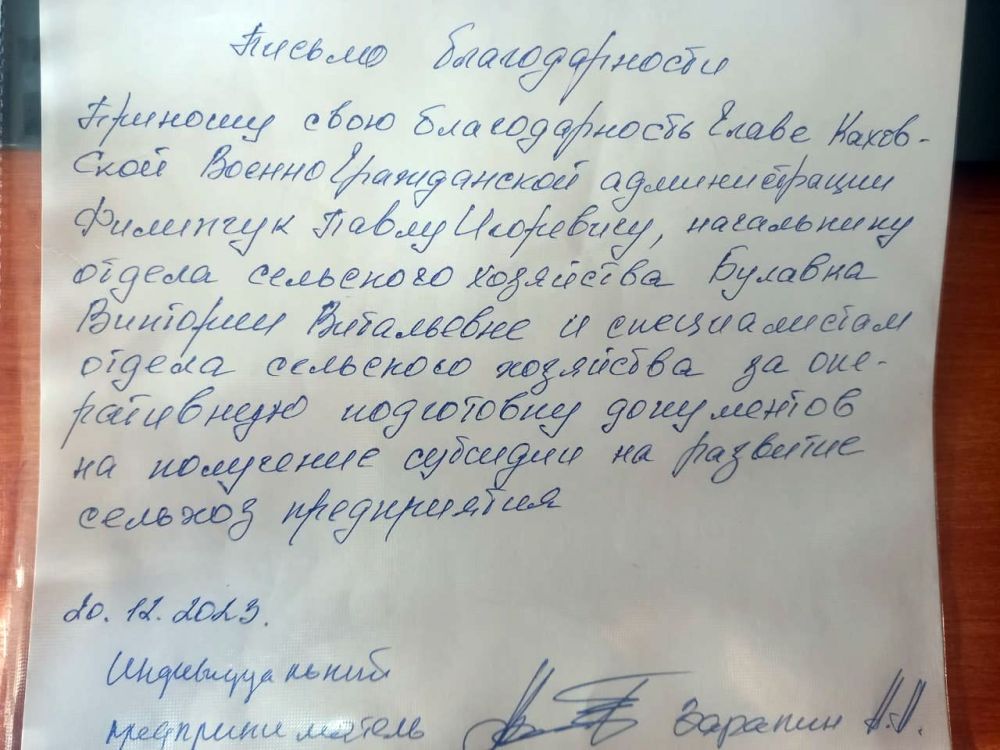 Письмо благодарности
Приношу свою благодарность Главе Кахов-
ской ВоенноГражданской администрации
Филипчук Павлу Игоревичу, начальнику
отдела сельского хозяйства Булавка
Виктории Витальевне и специалистам
отдела сельского хозяйства за опе-
ративную подготовку документов
на получение субсидии на развитие
сельхоз предприятия
20.12.2023.
Индивидуальный
предприниматель Зарапин